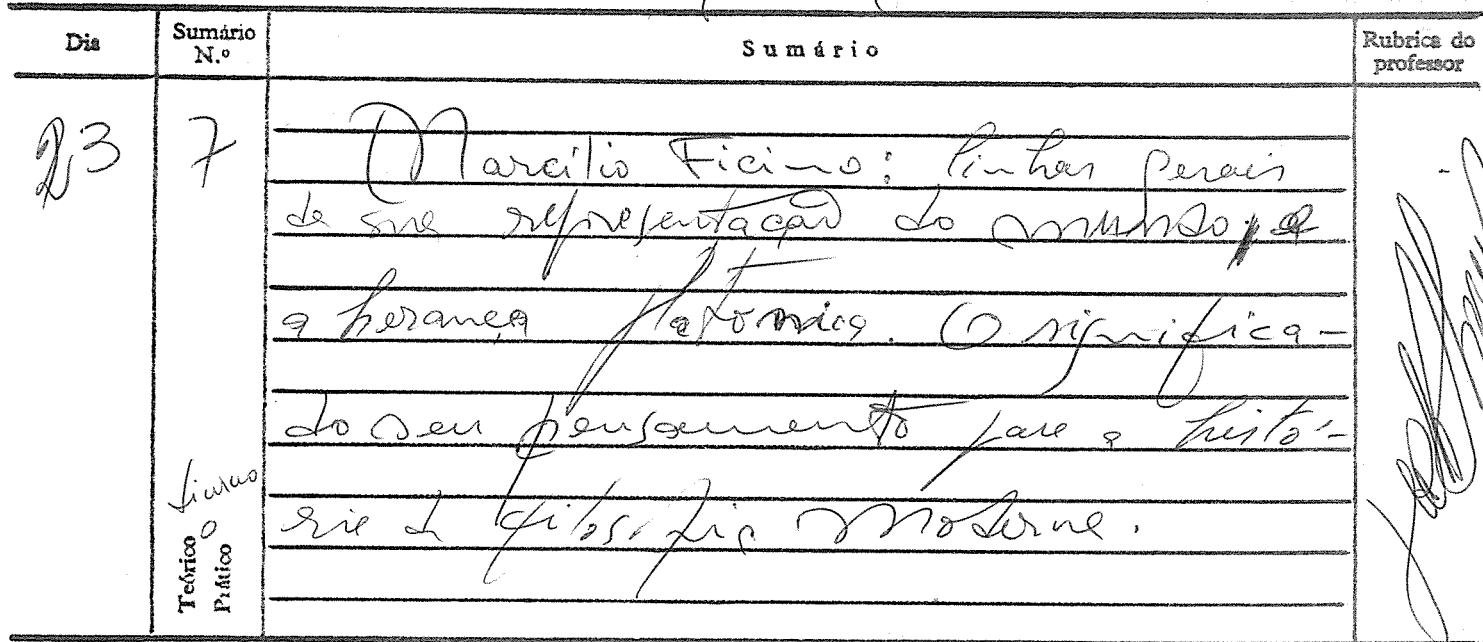 Dia Sumário N.º Sumário Rubrica do professor
23 7 Marcílio Ficino: linhas gerais
da sua representação do mundo; e
a herança platónica. O significa-
do seu pensamento para a histó-
ria da filosofia Moderna.
Teórico
Prático